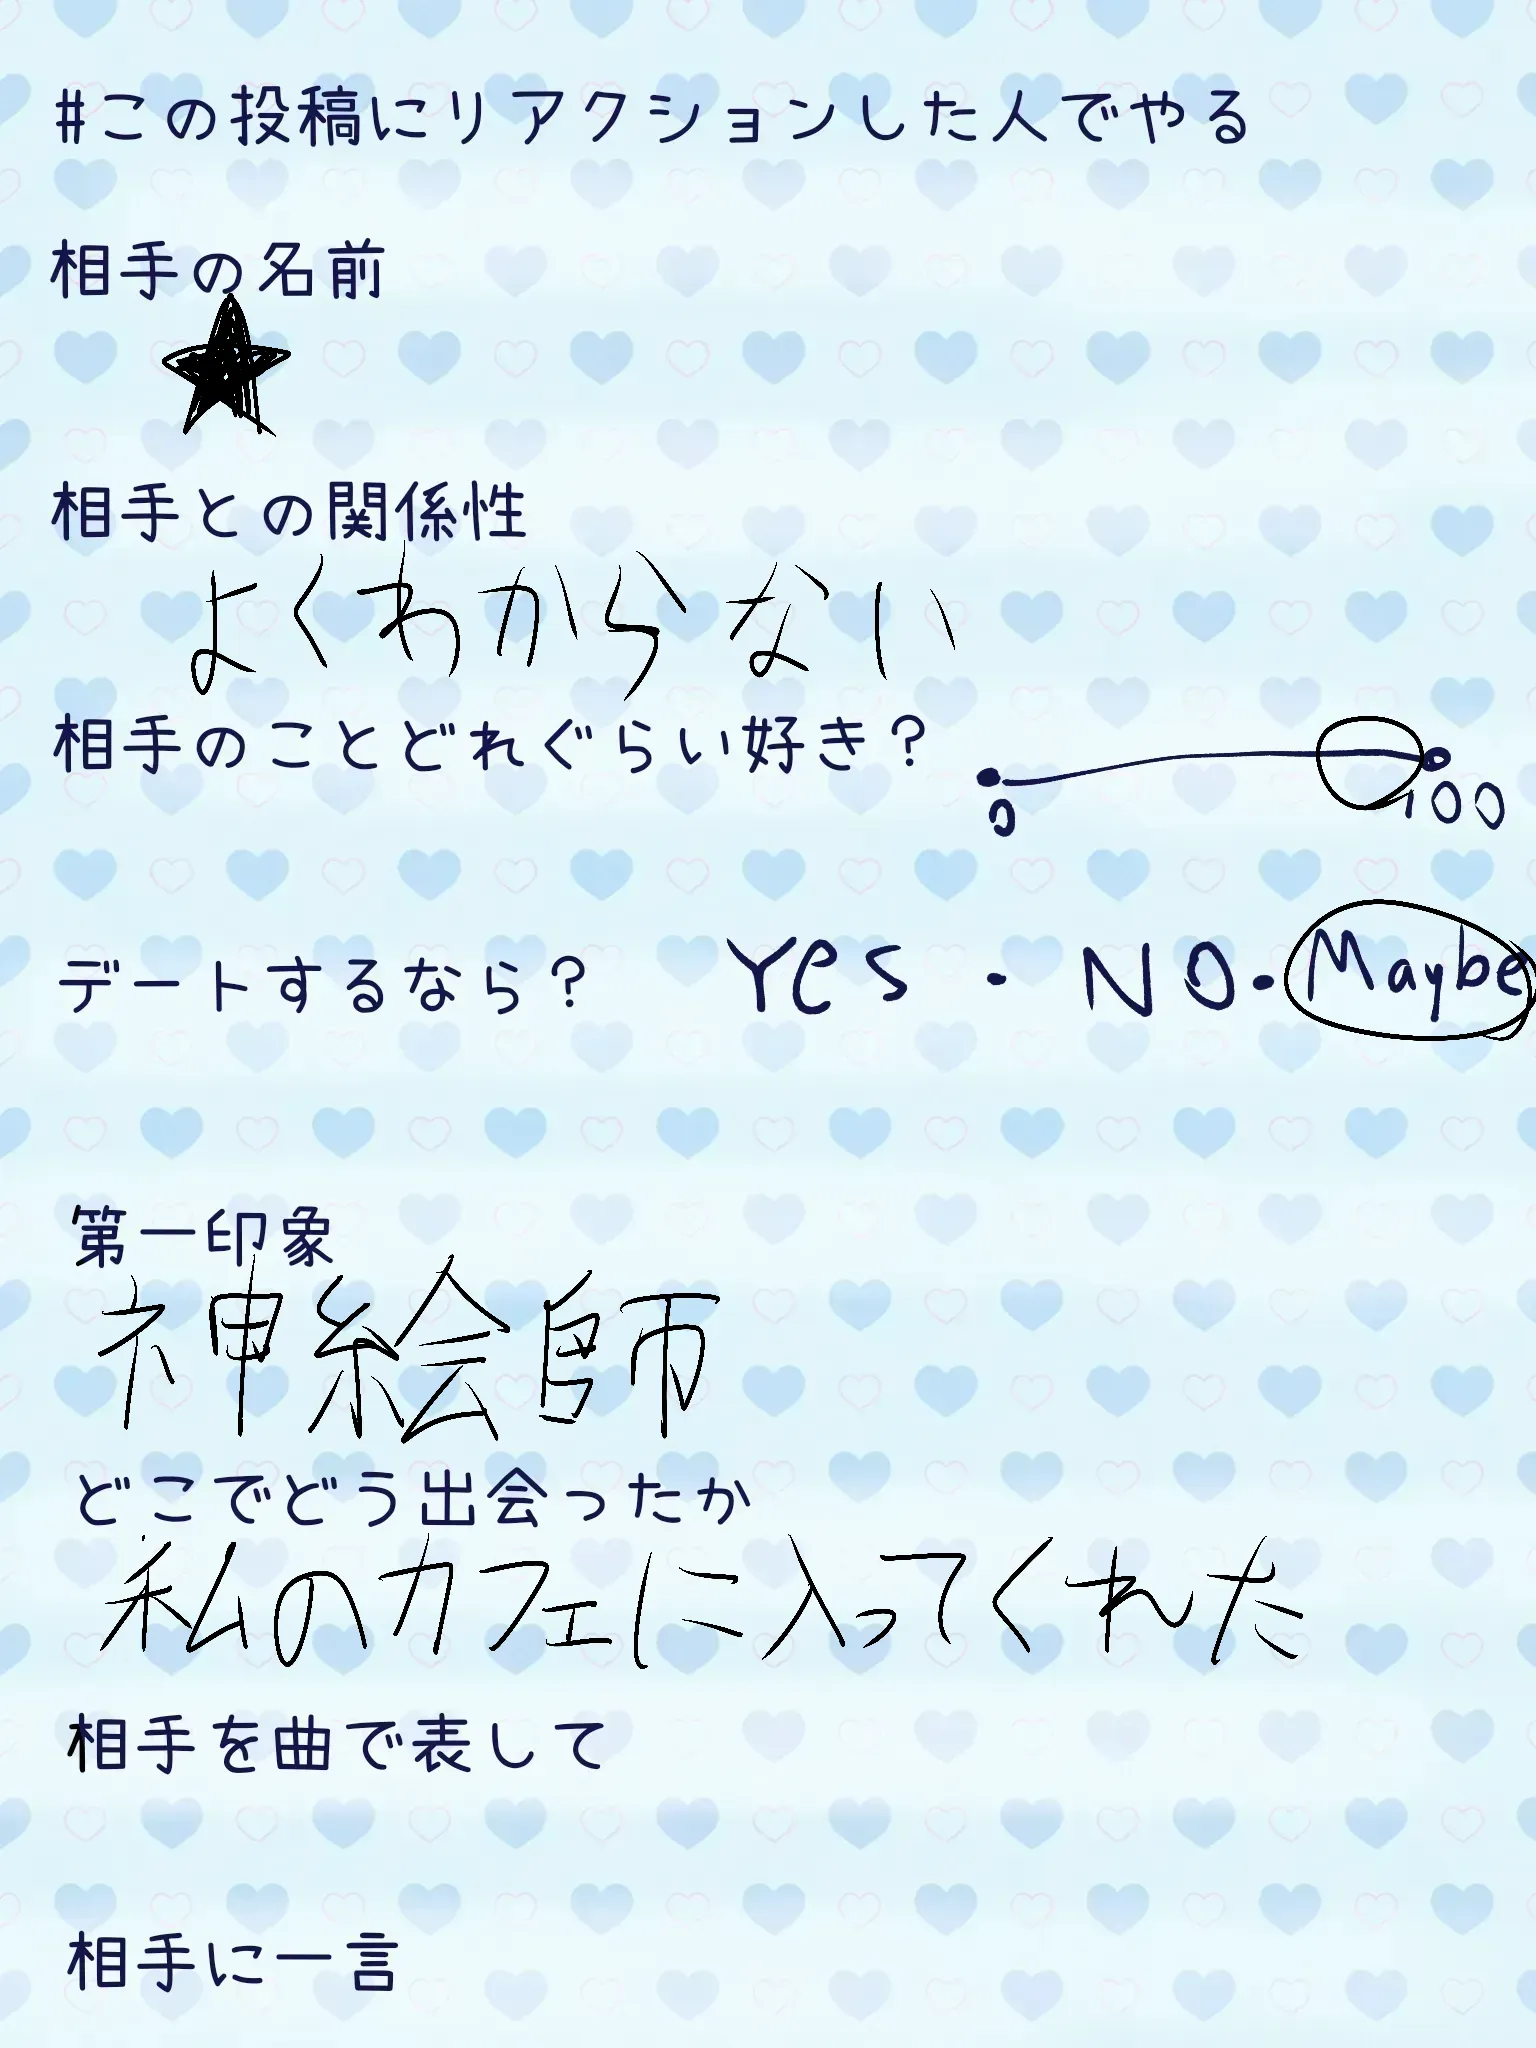 #この投稿にリアクションした人でやる
相手の名前
★
相手との関係性
よくわからない
相手のことどれぐらい好き？
0 100
デートするなら？ Yes ・ NO ・ Maybe
第一印象
神絵師
どこでどう出会ったか
私のカフェに入ってくれた
相手を曲で表して
相手に一言